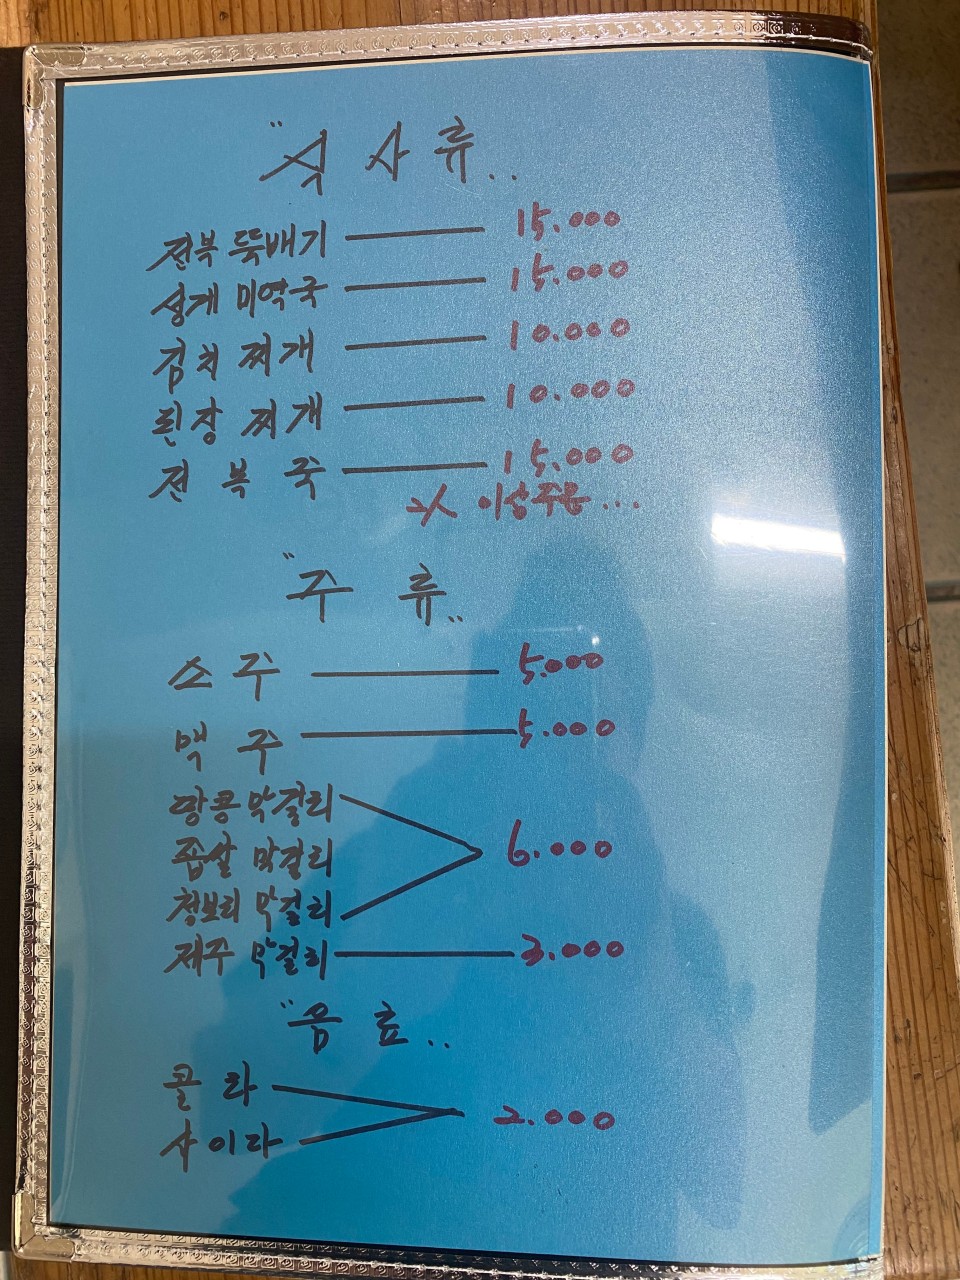 "식사류..
전복 뚝배기 15.000
성게 미역국 15.000
김치 찌개 10.000
된장 찌개 10.000
전복국 15.000
2人 이상주문...
"주류..
소주 5.000
맥주 5.000
땅콩 막걸리
좁쌀 막걸리 6.000
청보리 막걸리
제주 막걸리 3.000
"음료..
콜라
사이다 2.000